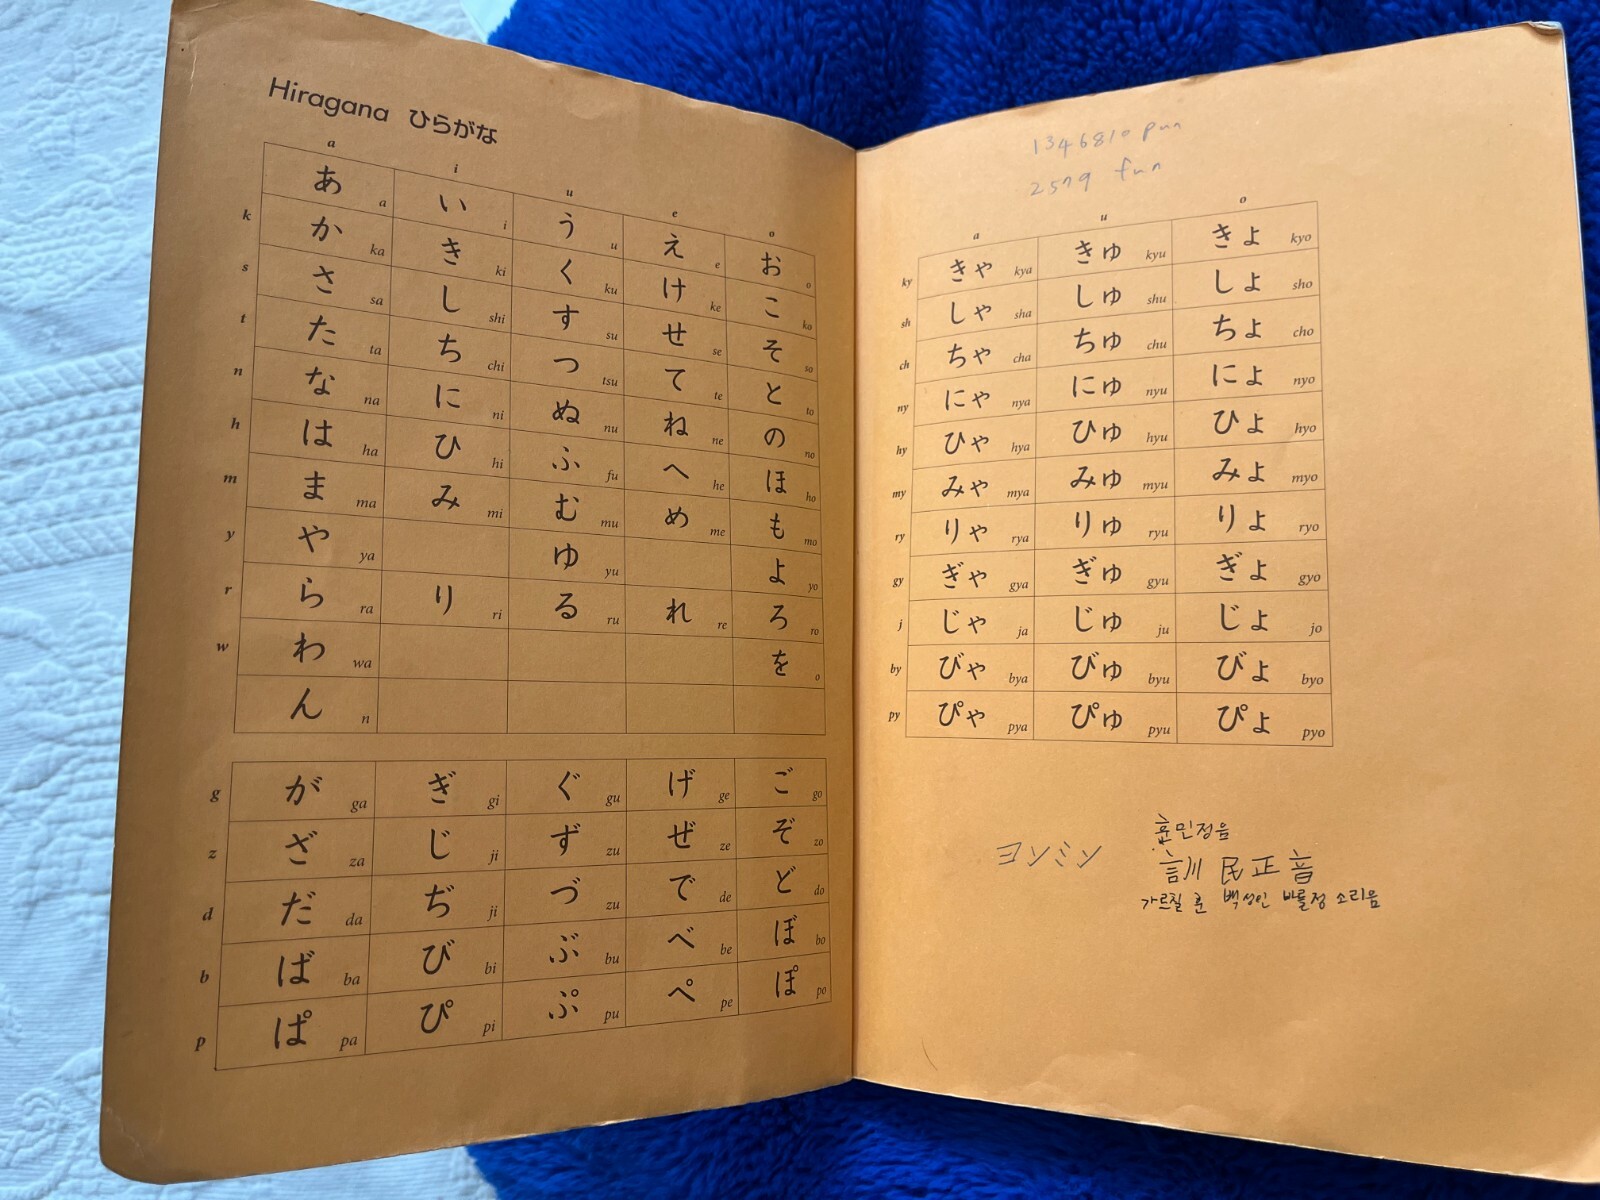 Hiragana ひらがな
a i u e o
あ a い i う u え e お o
k か ka き ki く ku け ke こ ko
s さ sa し shi す su せ se そ so
t た ta ち chi つ tsu て te と to
n な na に ni ぬ nu ね ne の no
h は ha ひ hi ふ fu へ he ほ ho
m ま ma み mi む mu め me も mo
y や ya ゆ yu よ yo
r ら ra り ri る ru れ re ろ ro
w わ wa を o
ん n
g が ga ぎ gi ぐ gu げ ge ご go
z ざ za じ ji ず zu ぜ ze ぞ zo
d だ da ぢ ji づ zu で de ど do
b ば ba び bi ぶ bu べ be ぼ bo
p ぱ pa ぴ pi ぷ pu ぺ pe ぽ po
1346810 pun
2579 fun
a u o
ky きゃ kya きゅ kyu きょ kyo
sh しゃ sha しゅ shu しょ sho
ch ちゃ cha ちゅ chu ちょ cho
ny にゃ nya にゅ nyu にょ nyo
hy ひゃ hya ひゅ hyu ひょ hyo
my みゃ mya みゅ myu みょ myo
ry りゃ rya りゅ ryu りょ ryo
gy ぎゃ gya ぎゅ gyu ぎょ gyo
j じゃ ja じゅ ju じょ jo
by びゃ bya びゅ byu びょ byo
py ぴゃ pya ぴゅ pyu ぴょ pyo
훈민정음
ヨンミン 訓民正音
가르칠 훈 백성인 바를정 소리음